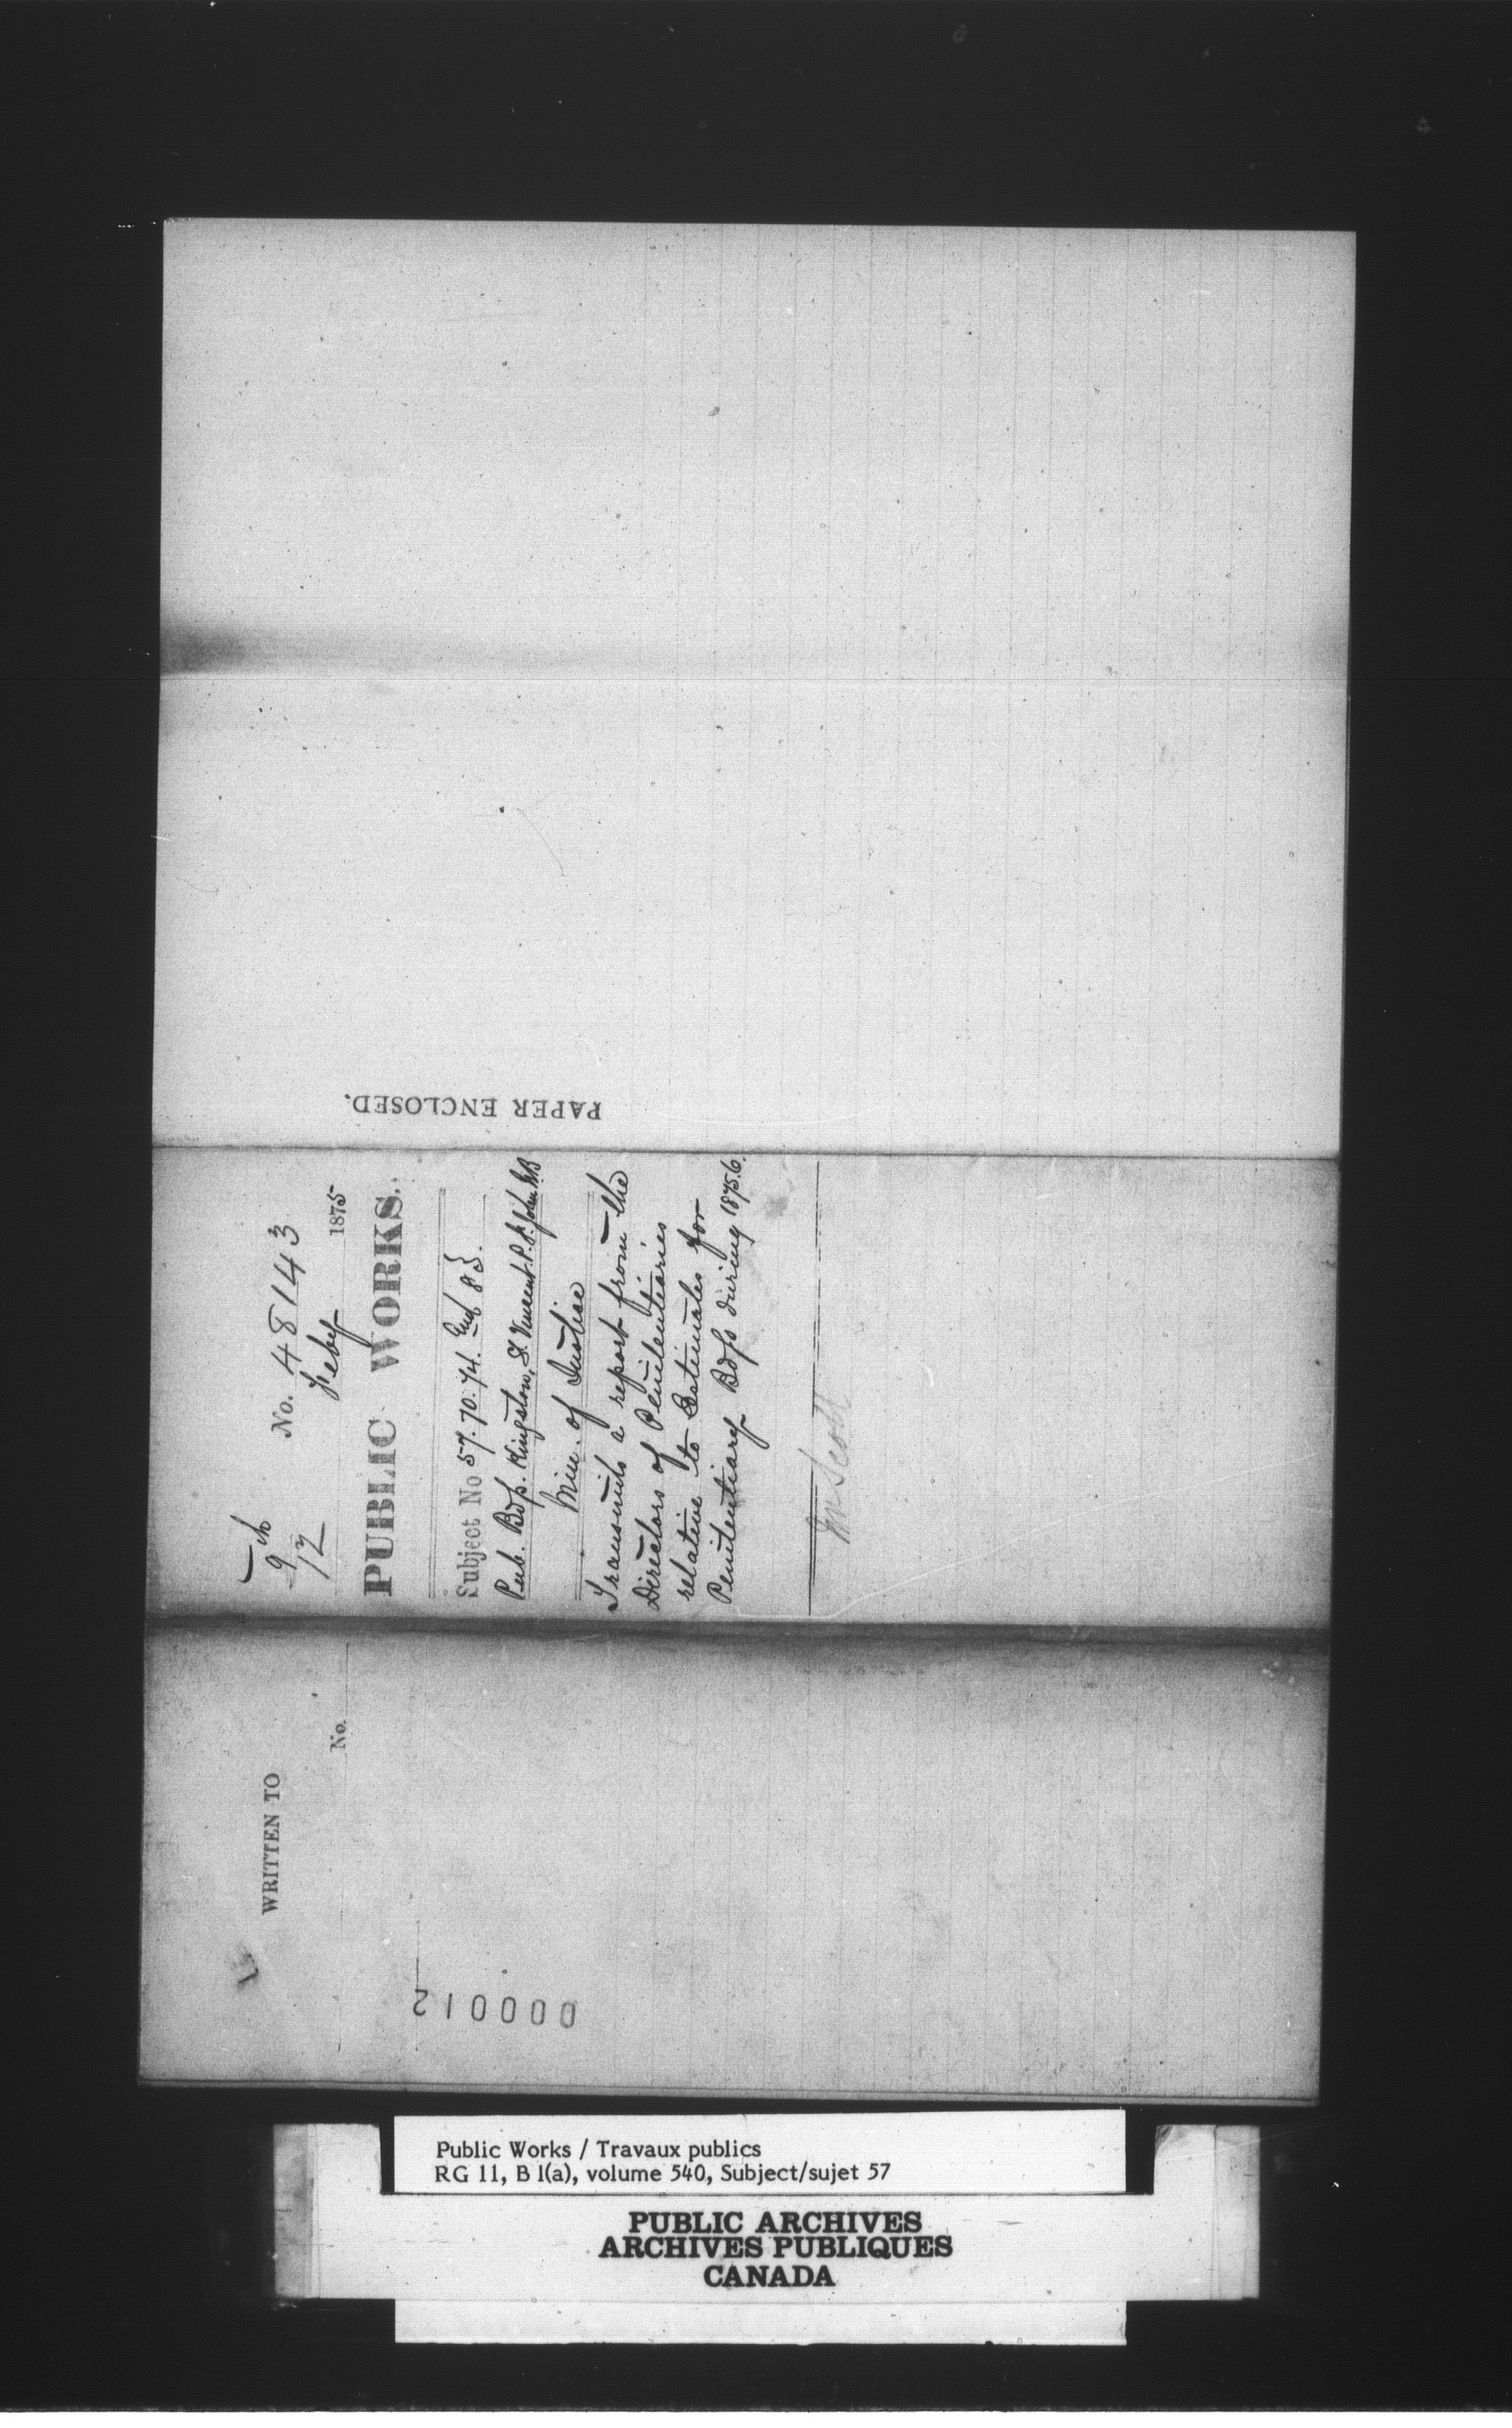 PAPER ENCLOSED.
9th
12
No. 48143
Feby 1875
PUBLIC WORKS.
Subject No 57. 70. 74. and 83.
Pub. Bdgs. Kingston, St Vincent P. St John NB
Min. of Justice
Transmits a report from the
Directors of Penitentiaries
relative to Estimates for
Penitentiary Bdgs during 1875.6.
Mr Scott
WRITTEN TO
No.
000012
Public Works / Travaux publics
RG 11, B 1(a), volume 540, Subject/sujet 57
PUBLIC ARCHIVES
ARCHIVES PUBLIQUES
CANADA